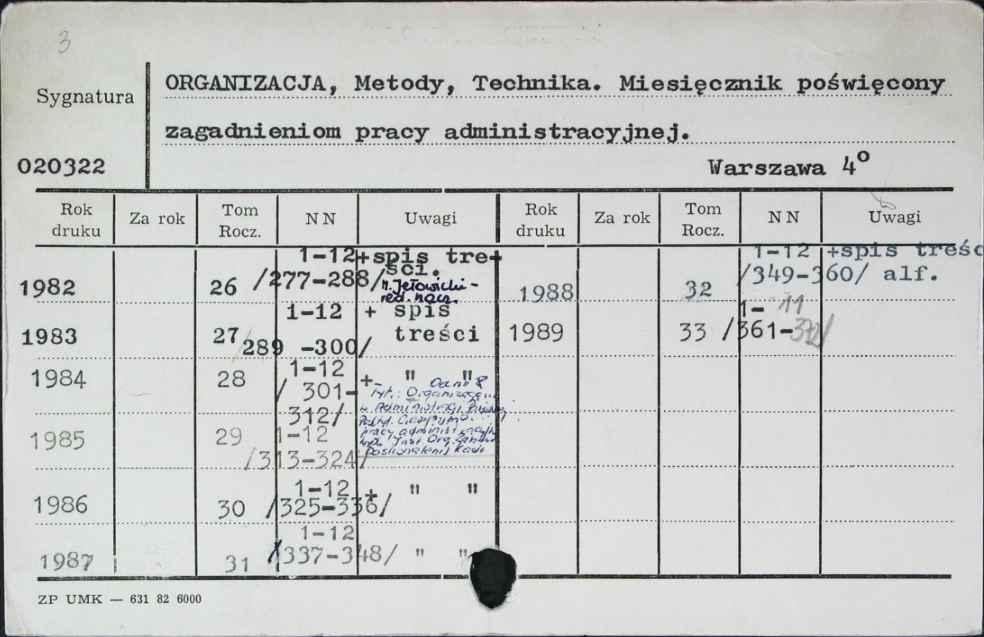 3
Sygnatura
ORGANIZACJA, Metody, Technika. Miesięcznik poświęcony
zagadnieniom pracy administracyjnej.
020322
Warszawa 4º
Rok druku Za rok Tom Rocz. NN Uwagi Rok druku Za rok Tom Rocz. NN Uwagi
1982 26 1-12 /277-288/ +spis treści.
red. nacz.
1983 27 1-12 /289-300/ + spis treści
1984 28 1-12 /301-312/ +- " "
Od nr 8
tyt.:
1985 29 1-12 /313-324/
1986 30 1-12 /325-336/ + " "
1987 31 1-12 /337-348/ " "
1988 32 1-12 /349-360/ +spis treśc alf.
1989 33 1-11 /361-
ZP UMK — 631 82 6000